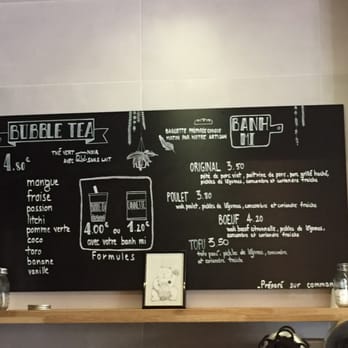 BUBBLE TEA
THÉ VERT NOIR
AVEC SANS LAIT
4.80€
mangue
fraise
passion
litchi
pomme verte
coco
taro
banane
vanille
4.00€ ou 1.20€
avec votre banh mi
Formules
BAGUETTE PRÉPARÉE CHAQUE
MATIN PAR NOTRE ARTISAN
BANH
MI
ORIGINAL 3.50
pâté de porc, poitrine de porc, porc grillé haché,
pickles de légumes, concombre et coriandre fraîche
POULET 3.80
wok poulet, pickles de légumes, concombre et coriandre fraîche
BOEUF 4.20
wok boeuf citronnelle, pickles de légumes,
concombre et coriandre fraîche
TOFU 3.50
tofu, pickles de légumes, concombre
et coriandre fraîche
Préparé sur comman